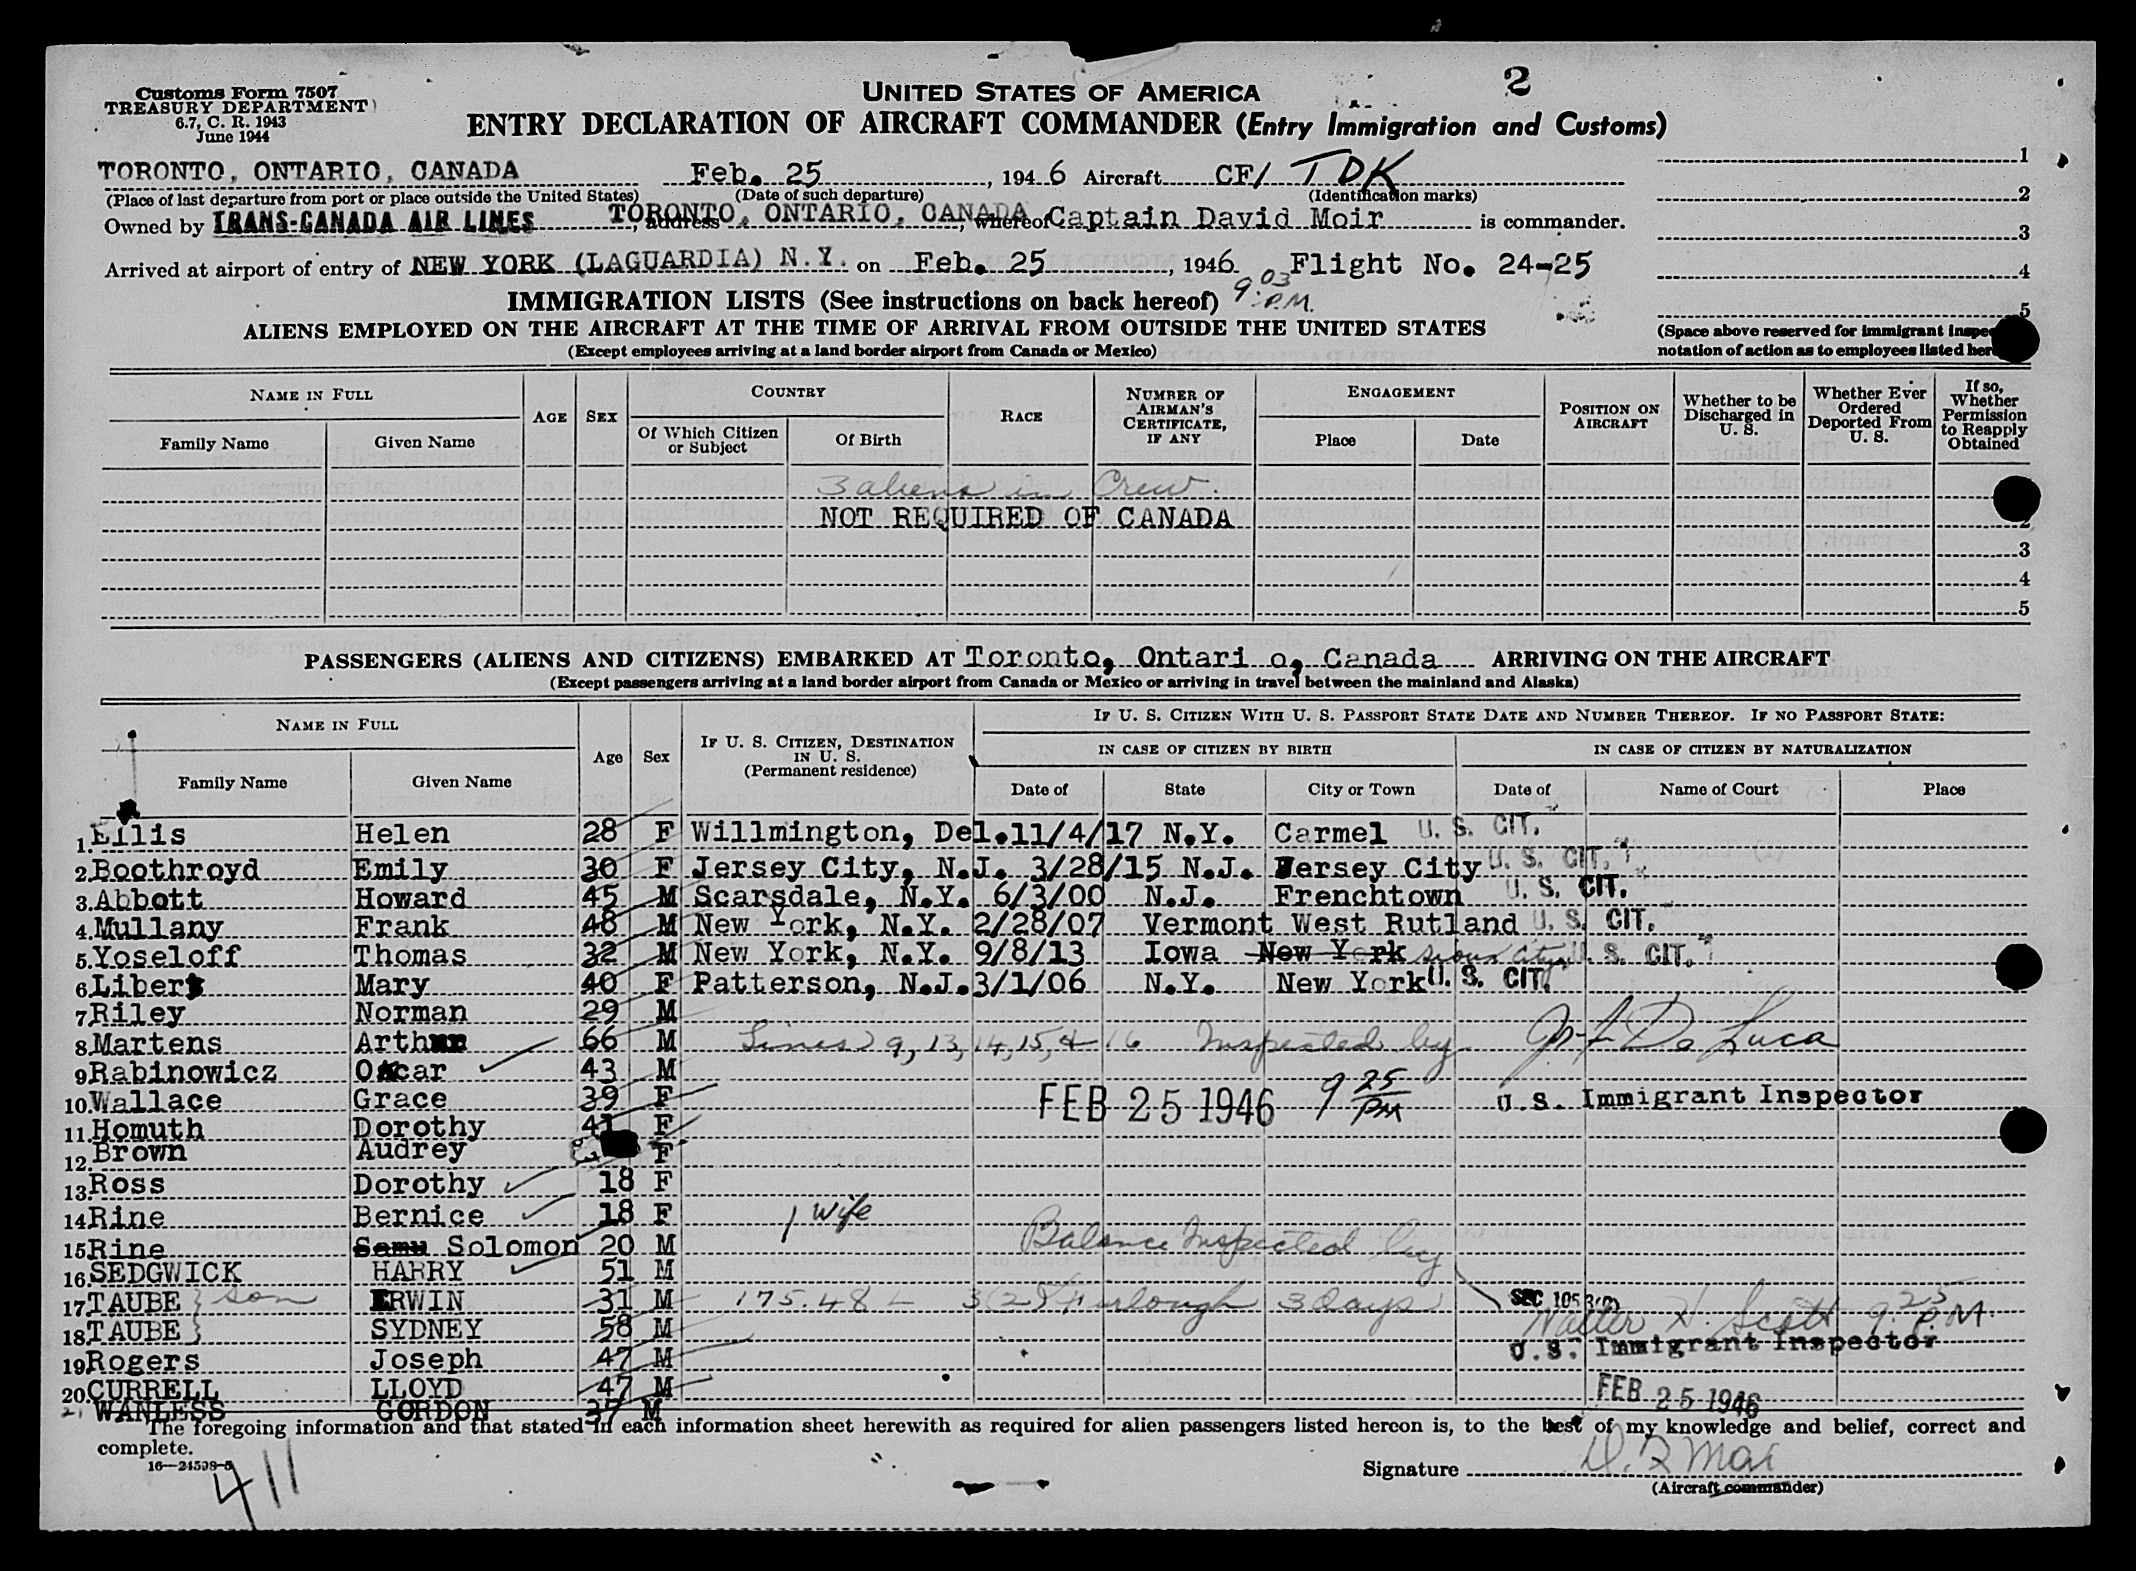 2
Customs Form 7507
TREASURY DEPARTMENT
6.7, C. R. 1943
June 1944
UNITED STATES OF AMERICA
ENTRY DECLARATION OF AIRCRAFT COMMANDER (Entry Immigration and Customs)
TORONTO, ONTARIO, CANADA Feb. 25, 1946 Aircraft CF/ TDK 1
(Place of last departure from port or place outside the United States) (Date of such departure) (Identification marks) 2
Owned by TRANS-CANADA AIR LINES, address TORONTO, ONTARIO, CANADA, whereof Captain David Moir is commander. 3
Arrived at airport of entry of NEW YORK (LAGUARDIA) N.Y. on Feb. 25, 1946 Flight No. 24-25 4
IMMIGRATION LISTS (See instructions on back hereof) 9:03 P.M. 5
ALIENS EMPLOYED ON THE AIRCRAFT AT THE TIME OF ARRIVAL FROM OUTSIDE THE UNITED STATES
(Except employees arriving at a land border airport from Canada or Mexico)
(Space above reserved for immigrant inspec
notation of action as to employees listed her
NAME IN FULL AGE SEX COUNTRY RACE NUMBER OF AIRMAN'S CERTIFICATE, IF ANY ENGAGEMENT POSITION ON AIRCRAFT Whether to be Discharged in U. S. Whether Ever Ordered Deported From U. S. If so, Whether Permission to Reapply Obtained
Family Name Given Name Of Which Citizen or Subject Of Birth Place Date
3 aliens in Crew.
NOT REQUIRED OF CANADA 2
3
4
5
PASSENGERS (ALIENS AND CITIZENS) EMBARKED AT Toronto, Ontari o, Canada ARRIVING ON THE AIRCRAFT
(Except passengers arriving at a land border airport from Canada or Mexico or arriving in travel between the mainland and Alaska)
NAME IN FULL Age Sex IF U. S. CITIZEN, DESTINATION IN U. S. (Permanent residence) IF U. S. CITIZEN WITH U. S. PASSPORT STATE DATE AND NUMBER THEREOF. IF NO PASSPORT STATE:
IN CASE OF CITIZEN BY BIRTH IN CASE OF CITIZEN BY NATURALIZATION
Family Name Given Name Date of State City or Town Date of Name of Court Place
1. Ellis Helen 28 F Willmington, Del. 11/4/17 N.Y. Carmel U. S. CIT.
2. Boothroyd Emily 30 F Jersey City, N.J. 3/28/15 N.J. Jersey City U. S. CIT.
3. Abbott Howard 45 M Scarsdale, N.Y. 6/3/00 N.J. Frenchtown U. S. CIT.
4. Mullany Frank 48 M New York, N.Y. 2/28/07 Vermont West Rutland U. S. CIT.
5. Yoseloff Thomas 32 M New York, N.Y. 9/8/13 Iowa New York Sioux City U. S. CIT.
6. Libert Mary 40 F Patterson, N.J. 3/1/06 N.Y. New York U. S. CIT.
7. Riley Norman 29 M
8. Martens Arthur 66 M Lines 9, 13, 14, 15, & 16 Inspected by De Luca
9. Rabinowicz Oscar 43 M
10. Wallace Grace 39 F FEB 25 1946 9 25 PM U.S. Immigrant Inspector
11. Homuth Dorothy 41 F
12. Brown Audrey F
13. Ross Dorothy 18 F
14. Rine Bernice 18 F 1 wife
15. Rine Samu Solomon 20 M Balance Inspected by
16. SEDGWICK HARRY 51 M
17. TAUBE } son ERWIN 31 M 175.48 3(2) Furlough 3 days SEC 105 3(2)
18. TAUBE } SYDNEY 58 M Walter H. Scott 9:25 P.M.
19. Rogers Joseph 47 M U.S. Immigrant Inspector
20. CURRELL LLOYD 47 M FEB 25 1946
21 WANLESS GORDON 37 M
The foregoing information and that stated in each information sheet herewith as required for alien passengers listed hereon is, to the best of my knowledge and belief, correct and
complete.
16—24598-5
411
Signature
(Aircraft commander)